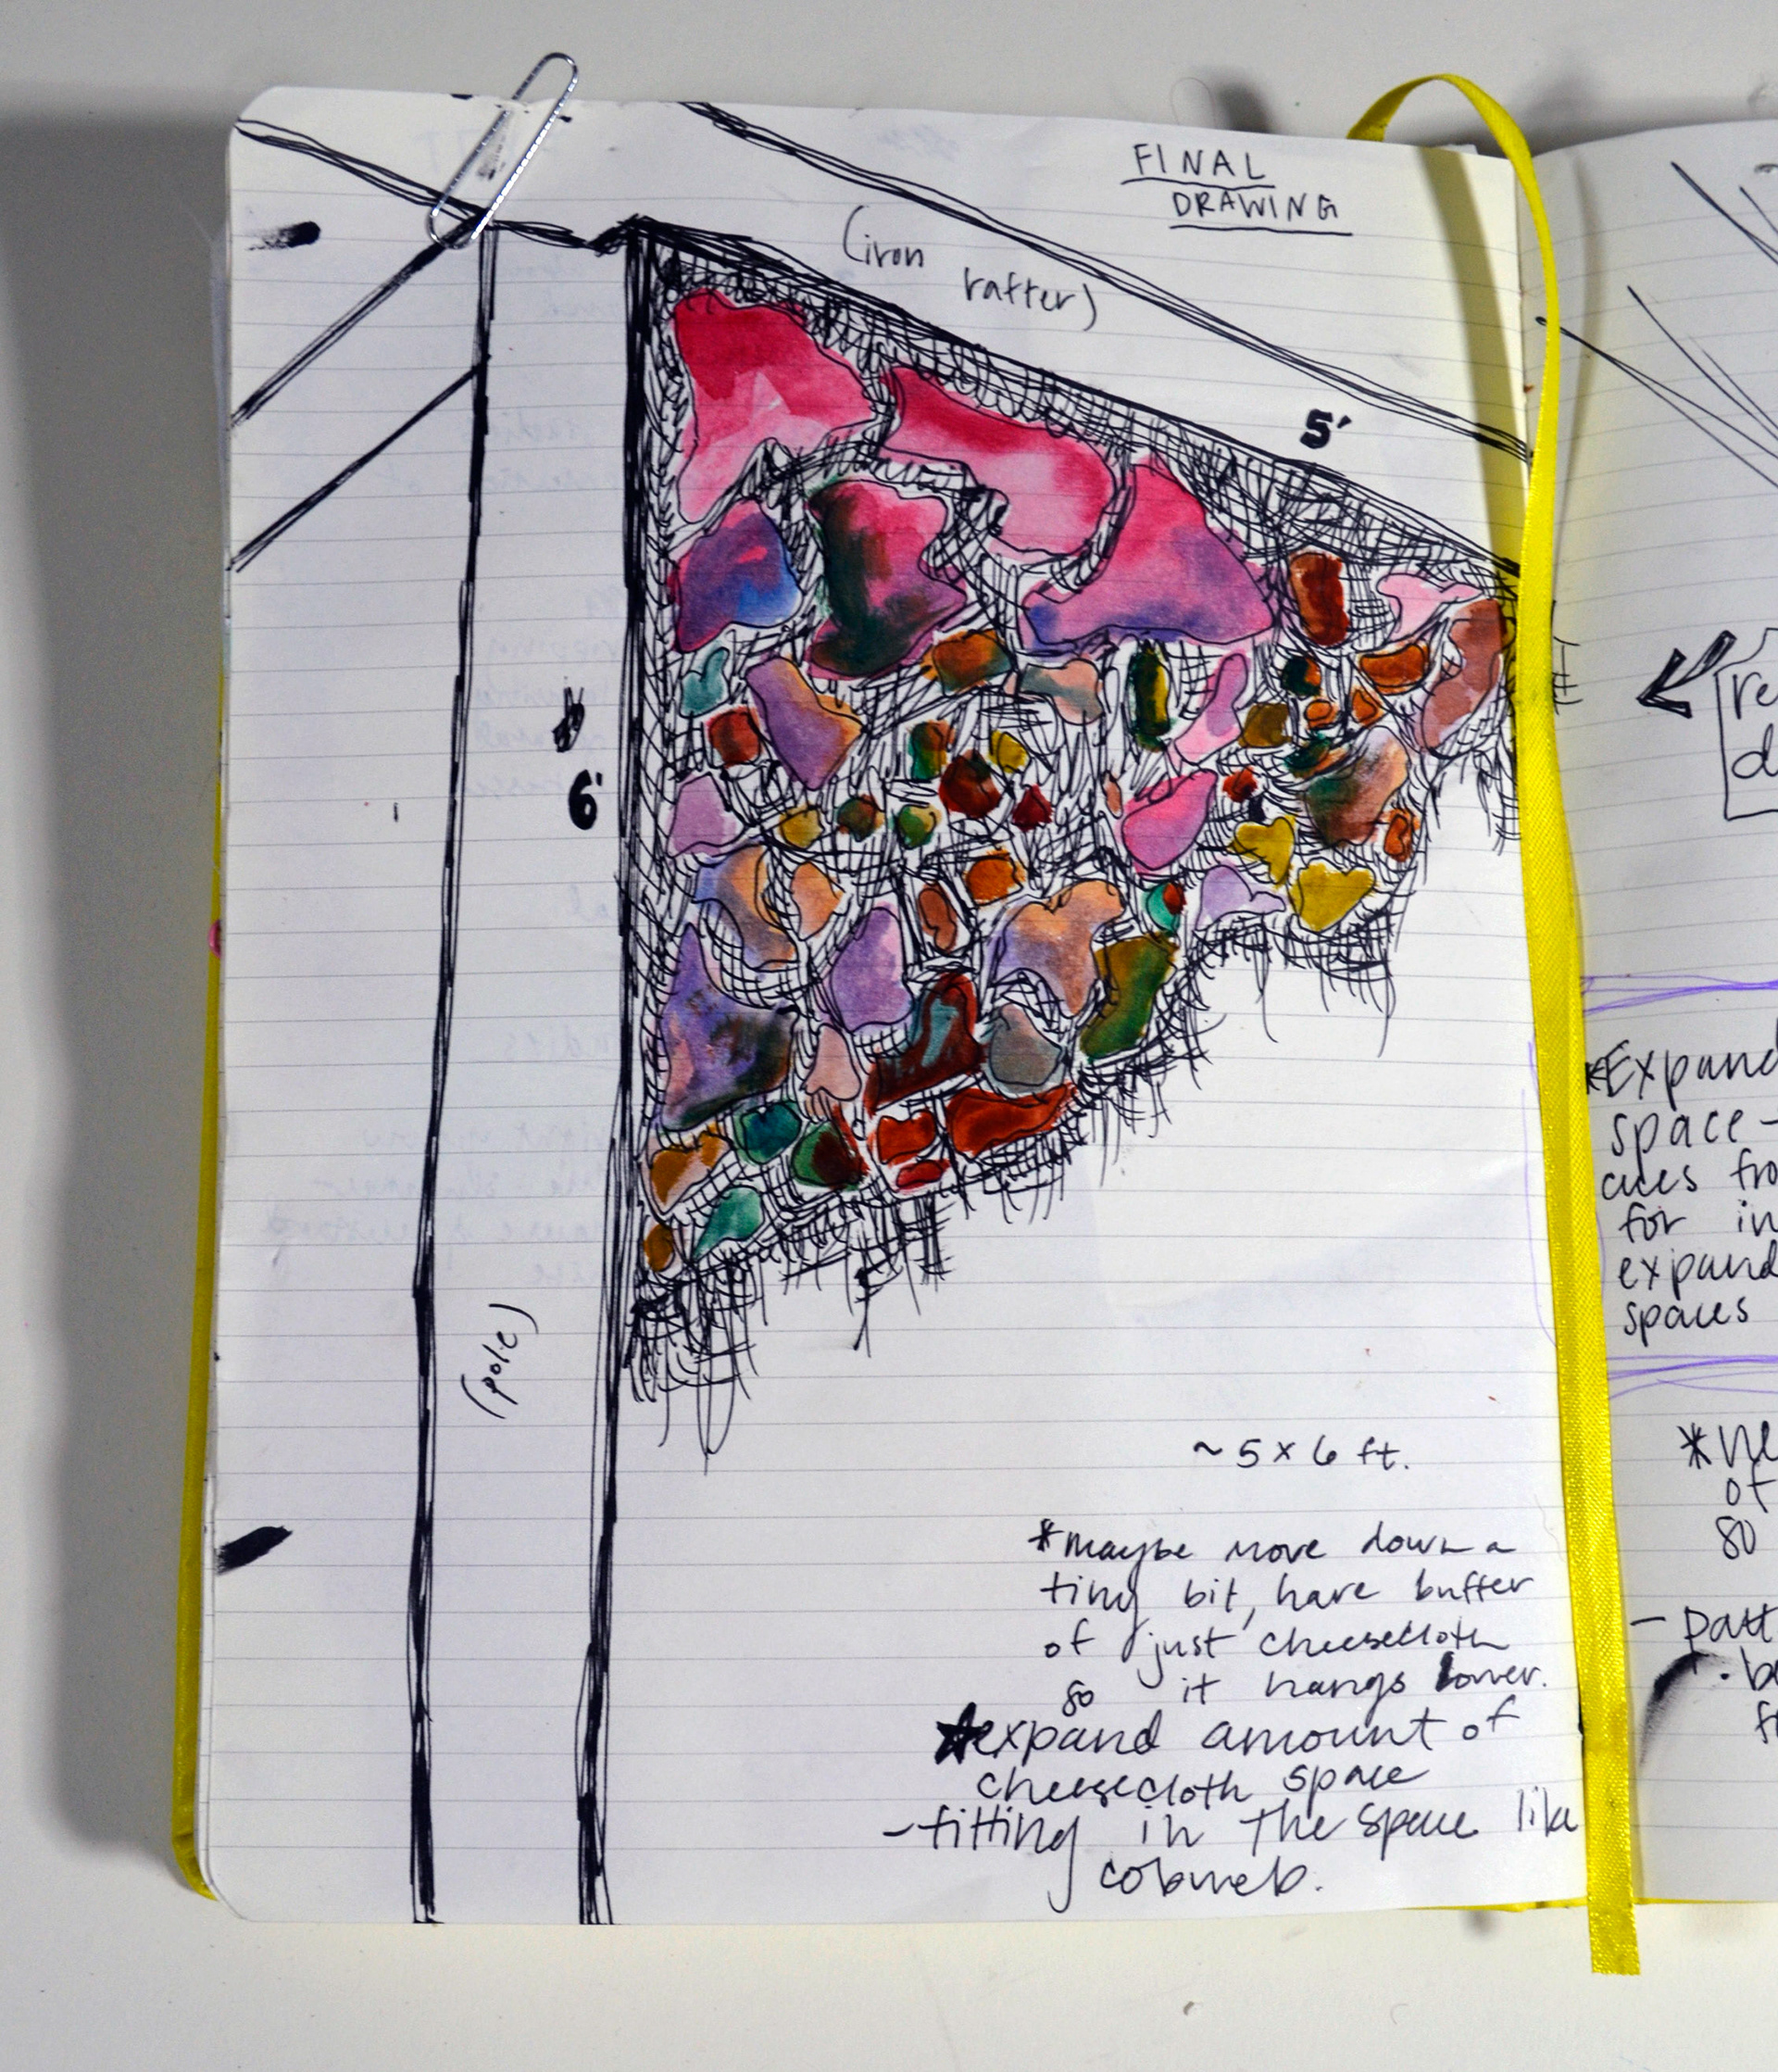 FINAL
DRAWING
(iron
rafter)
5'
6'
(pole)
~ 5 x 6 ft.
*maybe move down a
tiny bit, have buffer
of just cheesecloth
so it hangs lower.
*expand amount of
cheesecloth space
-fitting in the space like
cobweb.
re
d
*Expand
space-
fro
for in
expand
spaces
*
of
80
-
.